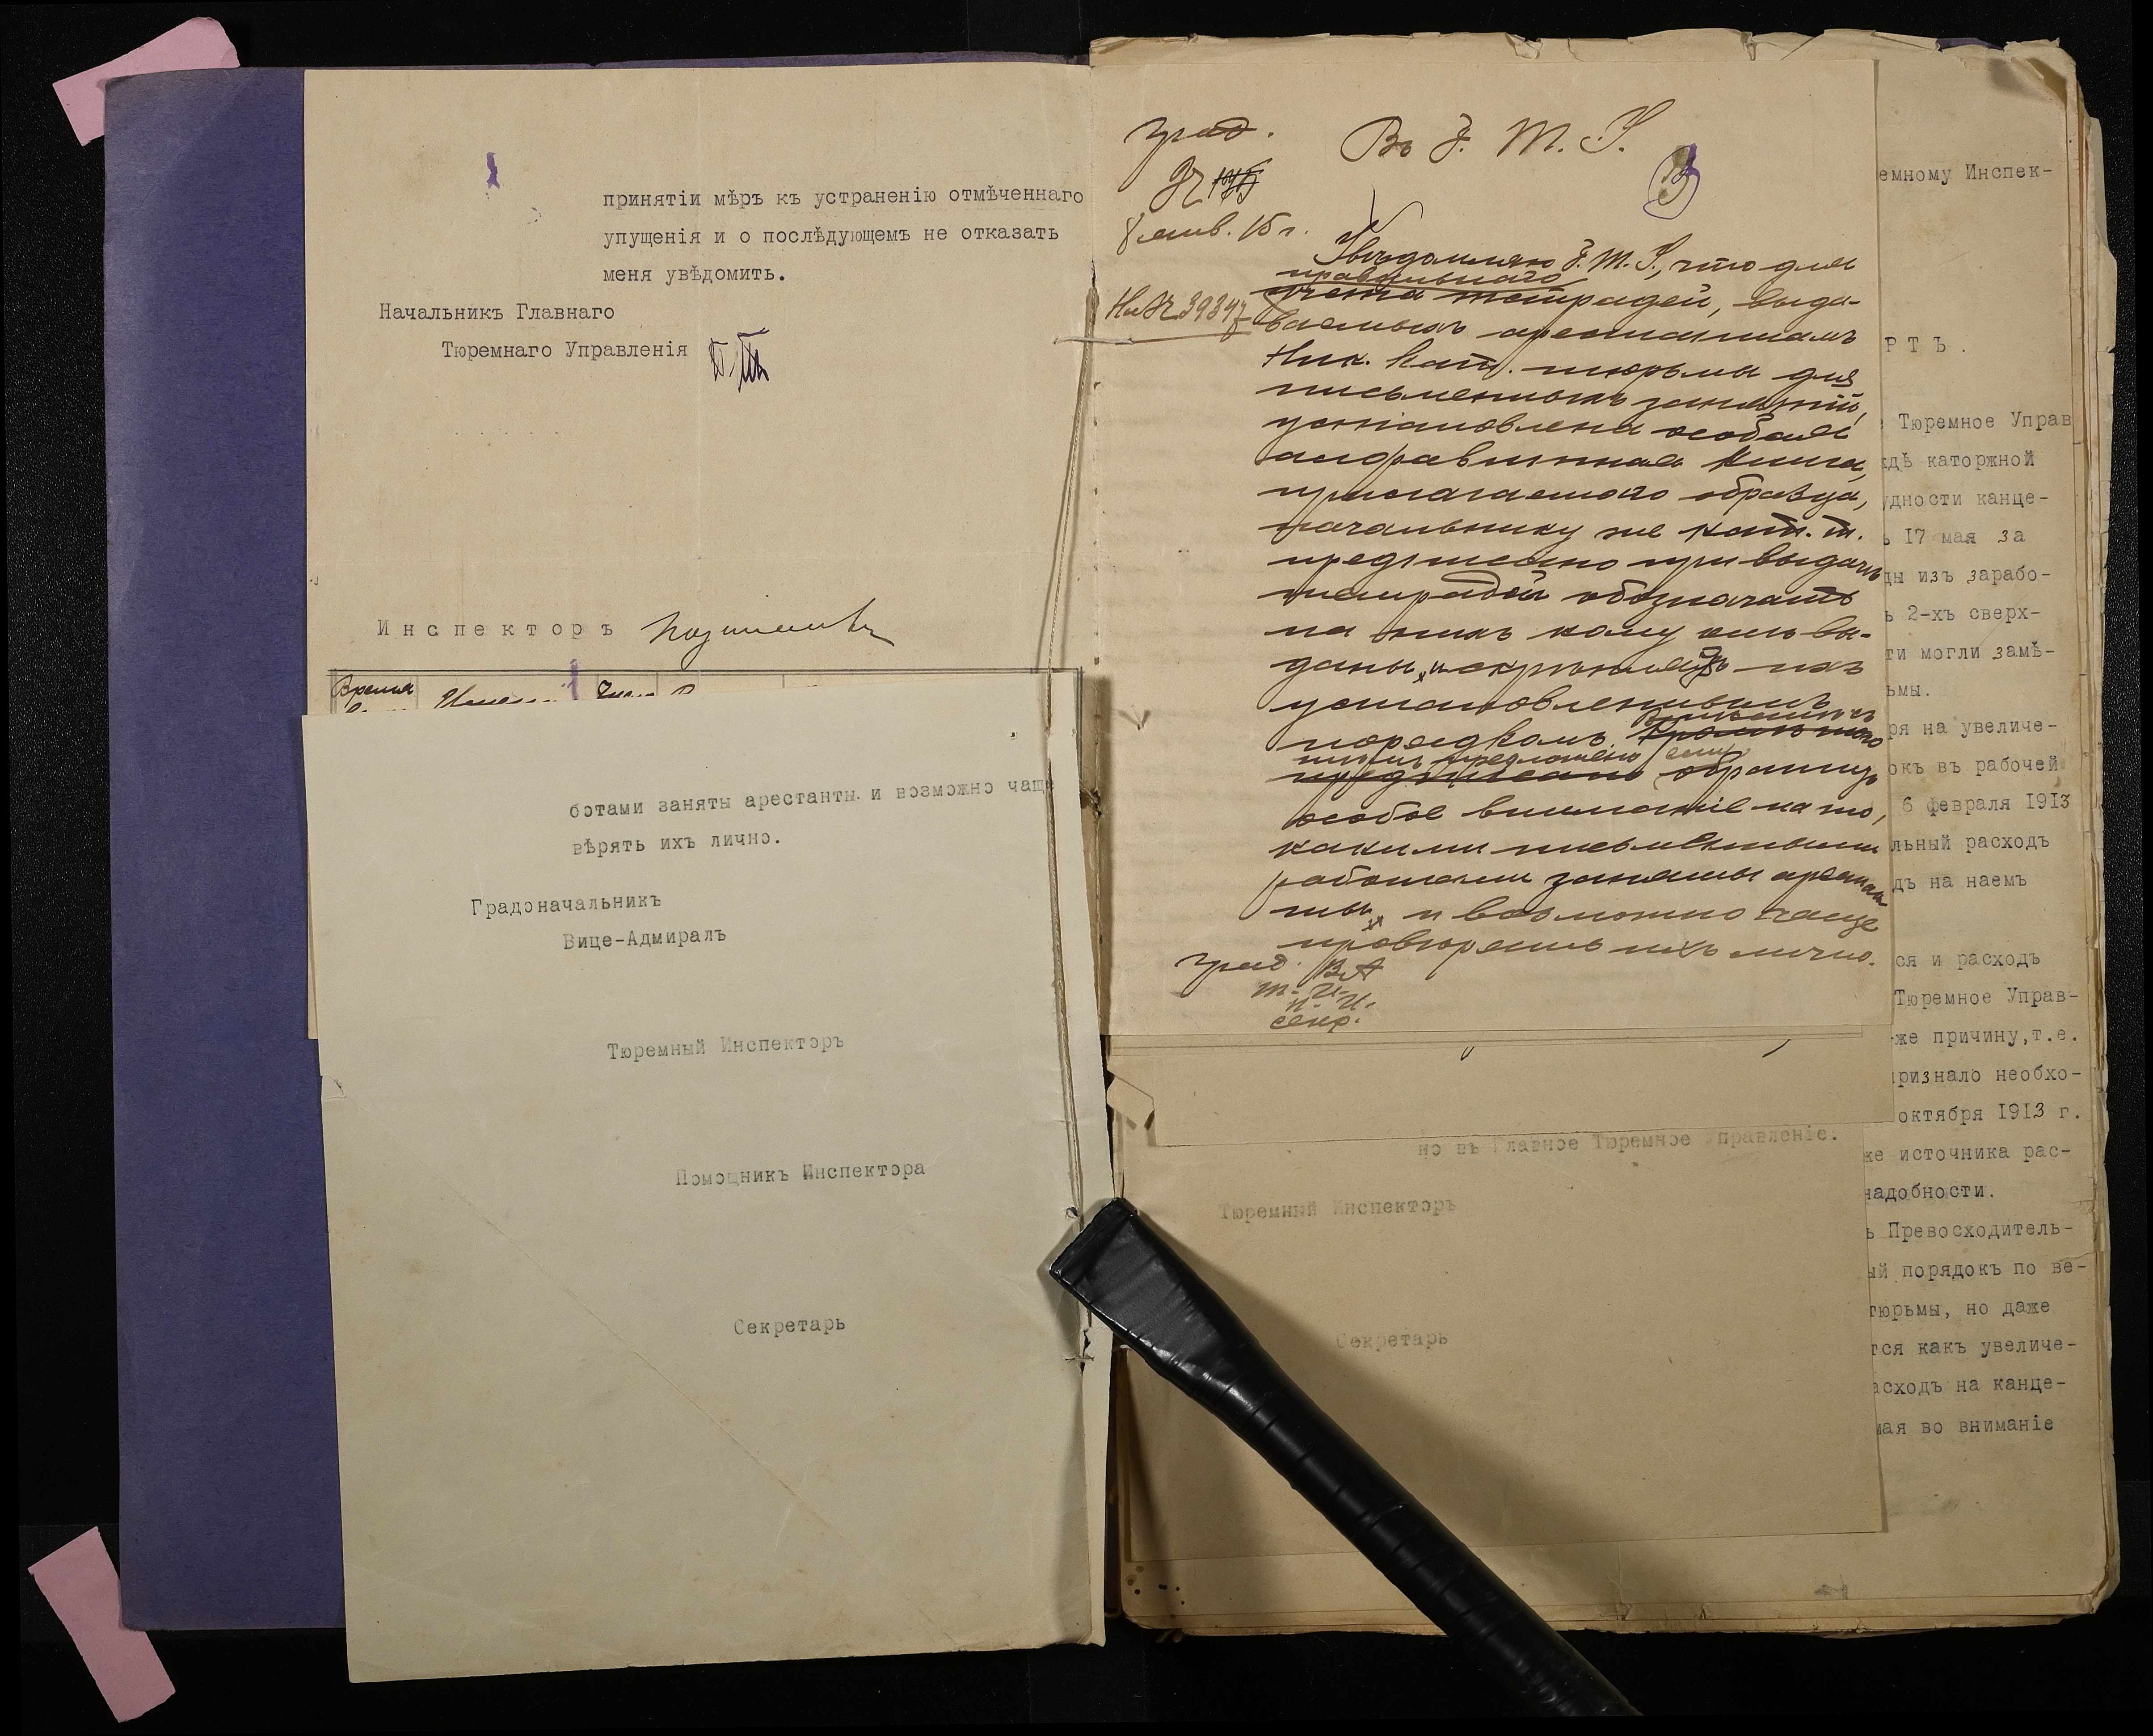 принятіи мѣръ къ устраненію отмѣченнаго
упущенія и о послѣдующемъ не отказать
меня увѣдомить.
Начальникъ Главнаго
Тюремнаго Управленія
Инспекторъ
Время
ботами заняты арестанты и возможно чаще
вѣрять ихъ лично.
Градоначальникъ
Вице-Адмиралъ
Тюремный Инспекторъ
Помощникъ Инспектора
Секретарь
Град.
Въ Г. Т. У.
3
8 янв. 15 г.
Увѣдомляю Г. Т. У., что для
правильнаго
учета тетрадей, выда-
На № 39347
ваемыхъ арестантамъ
Ник. кат. тюрьмы для
письменныхъ занятій,
установлена особая
алфавитная книга,
прилагаемого образца,
начальнику же кат. т.
предписано при выдачѣ
тетрадей обозначать
на нихъ кому онѣ вы-
даны, и скрѣплять ихъ
установленнымъ
порядкомъ.
предложено ему
предписано обратить
особое вниманіе на то,
какими письменными
работами заняты арестан
ты, и возможно чаще
провѣрять ихъ лично.
Град. В. А
Т. И.
П. И.
Секр.
но въ Главное Тюремное Управленіе.
Тюремный Инспекторъ
Секретарь
емному Инспек-
РТЪ.
Тюремное Управ
ждѣ каторжной
удности канце-
17 мая за
ды изъ зарабо-
ъ 2-хъ сверх-
ти могли замѣ-
ьмы.
ря на увеличе-
окъ въ рабочей
6 февраля 1913
льный расходъ
дъ на наемъ
ся и расходъ
Тюремное Управ-
же причину,т.е.
признало необхо-
октября 1913 г.
же источника рас-
надобности.
ъ Превосходитель-
ый порядокъ по ве-
тюрьмы, но даже
тся какъ увеличе-
асходъ на канце-
мая во вниманіе